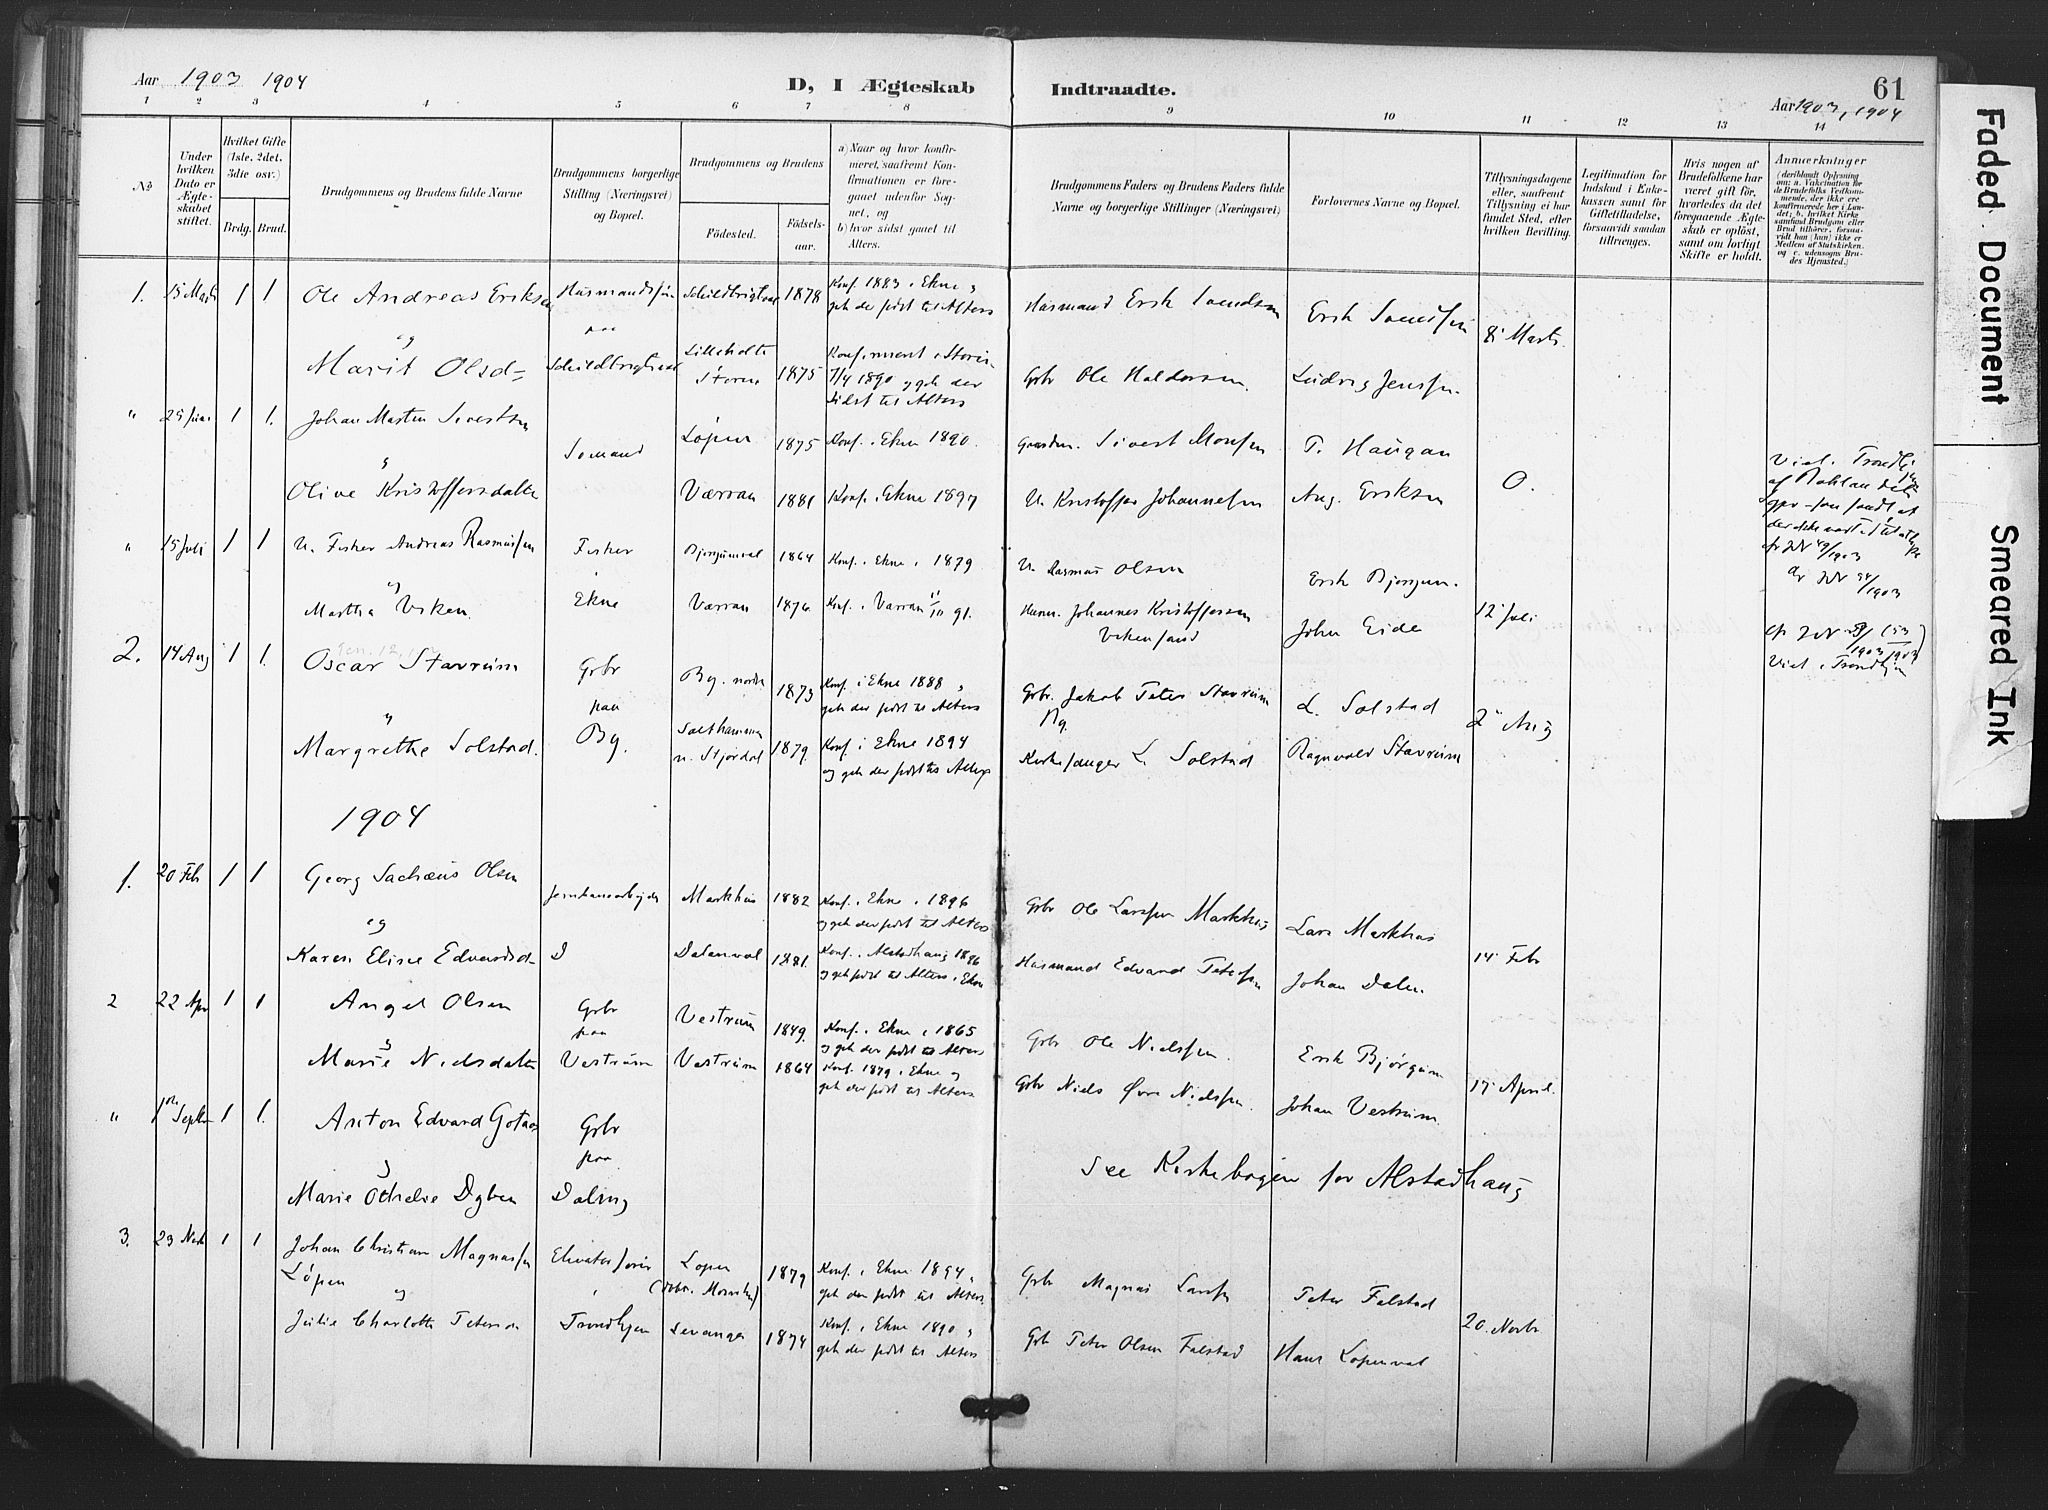 Aar 1903 1904
D, I Ægteskab Indtraadte.
61
Aar 1903, 1904
1 2 3 4 5 6 7 8 9 10 11 12 13 14
No
Under hvilken Dato er Ægteskabet stiftet.
Hvilket Gifte (1ste, 2det, 3die osv.)
Brdg. Brud.
Brudgommens og Brudens fulde Navne
Brudgommens borgerlige Stilling (Næringsvei) og Bopæl.
Brudgommens og Brudens
Fødested.
Fødselsaar.
a) Naar og hvor konfirmeret, saafremt Konfirmationen er foregaaet udenfor Sognet, og
b) hvor sidst gaaet til Alters.
Brudgommens Faders og Brudens Faders fulde Navne og borgerlige Stillinger (Næringsvei)
Forlovernes Navne og Bopæl.
Tillysningsdagene eller, saafremt Tillysning ei har fundet Sted, efter hvilken Bevilling.
Legitimation for Indskud i Enkekassen samt for Giftetilladelse, forsaavidt saadan tiltrænges.
Hvis nogen af Brudefolkene har været gift før, hvorledes da det foregaaende Ægteskab er opløst, samt om lovligt Skifte er holdt.
Anmærkninger
(deriblandt Oplysning om: a. Vakcination for de Brudefolks Vedkommende, der ikke ere konfirmerede her i Landet; b. hvilket Kirkesamfund Brudgom eller Brud tilhører, forsaavidt han (hun) ikke er Medlem af Statskirken, og c. udensogns Brudes Hjemsted.)
1. 15 Marts 1 1 Ole Andreas Eriksen Husmandssøn 1878 Konf. 1883 i Ekne og
gik der sidst til Alters Husmand Erik Svendsen Erik Svendsen 8 Marts.
og paa
Marit Olsd= Lilleholte
Størne 1875 Konfirmeret i
1890 og gik der
sidst til Alters Gbr Ole Haldorsen Ludvig Jenssen.
" 29 Juni 1 1. Johan Martin Sivertsen Sømand Løpen 1875 Konf. i Ekne 1890. Gaardm. Sivert Monsen T. Haugan
og
Olive Kristoffersdatter Værran 1881 Konf. i Ekne 1897 U. Kristoffer Johannesen Aug. Eriksen 0.
" 15 Juli 1 1 U. Fisker Andreas Rasmussen Fisker Bjørgumval 1864 Konf. i Ekne i 1879 U. Rasmus Olsen Erik Bjørgum.
og
Martha Viken. Ekne Værran 1876. Konf. i Værran 91. Johannes Kristoffersen John Eide 12 Juli
2. 14 Aug 1 1. Oscar Stavrum Gbr By. nordre 1873 Konf. i Ekne 1888 og
gik der sidst til Alters Gbr. Jakob Peter Stavrum
By L. Solstad
og paa
Margrethe Solstad. By. Salthammer
n. Stjørdal 1879. Konf. i Ekne 1894
og gik der sidst til Alters Kirkesanger L. Solstad Ragnvald Stavrum 2 Aug
1904
1. 20 Feb 1 1 Georg Sachæus Olsen Jernbanearbeider Markhus 1882 Konf. i Ekne i 1896
og gik der sidst til Alters Gbr Ole Larssen Markhus Lars Markhus
og
Karen Elise Edvardsd= D Dalenval 1881. Konf. i Alstadhaug 1896
og gik sidst til Alters i Ekne Husmand Edvard Petersen Johan Dalen. 14 Febr
2 22 Apr 1 1 Angel Olsen Gbr
paa Vestrum 1849. Konf. i Ekne i 1865
og gik der sidst til Alters Gbr Ole Nielssen. Erik Bjørgum
og
Marie Nielsdatter Vestrum Vestrum 1864 Konf. 1879 i Ekne og
gik der sidst til Alters Gbr Niels Øvre Nielssen. Johan Vestrum. 17 April.
" 1ste Septbr 1 1. Anton Edvard Gotaas Gbr
paa
og
Marie Othelie Dyben Daling See Kirkebogen for Alstadhaug
3. 23 Novb 1 1 Johan Christian Magnussen
Løpen Løpen 1879 Konf. i Ekne 1894 og
gik der sidst til Alters. Gbr Magnus Larssen Peter Falstad
og
Julie Charlotte Petersen Trondhjem Levanger 1874 Konf. i Ekne 1890 og
gik der sidst til Alters Gbr Peter Olsen Falstad Hans Løpenval 20. Novbr
Viet i Trondhjem
Faded Document
Smeared Ink